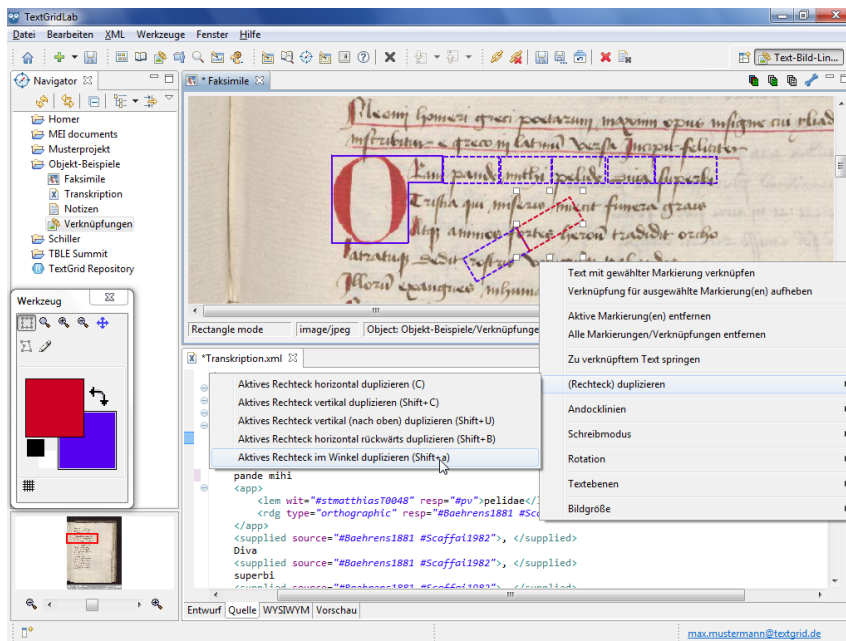 TextGridLab
Datei Bearbeiten XML Werkzeuge Fenster Hilfe
Text-Bild-Lin...
Navigator
Homer
MEI documents
Musterprojekt
Objekt-Beispiele
Faksimile
Transkription
Notizen
Verknüpfungen
Schiller
TBLE Summit
TextGrid Repository
Werkzeug
* Faksimile
greci poetarum
greco in latinu
pande mihi pelide Diva superbi
Tristia qui miseris funera grais
Atq animos fortes heroū tradidit orcho
Rectangle mode
image/jpeg
Object: Objekt-Beispiele/Verknüpfunge
Text mit gewählter Markierung verknüpfen
Verknüpfung für ausgewählte Markierung(en) aufheben
Aktive Markierung(en) entfernen
Alle Markierungen/Verknüpfungen entfernen
Zu verknüpftem Text springen
(Rechteck) duplizieren
Andocklinien
Schreibmodus
Rotation
Textebenen
Bildgröße
*Transkription.xml
Aktives Rechteck horizontal duplizieren (C)
Aktives Rechteck vertikal duplizieren (Shift+C)
Aktives Rechteck vertikal (nach oben) duplizieren (Shift+U)
Aktives Rechteck horizontal rückwärts duplizieren (Shift+B)
Aktives Rechteck im Winkel duplizieren (Shift+a)
pande mihi
<app>
<lem wit="#stmatthiasT0048" resp="#pv">pelidae</
<rdg type="orthographic" resp="#Baehrens1881 #Sc
</app>
<supplied source="#Baehrens1881 #Scaffai1982">, </supplied>
Diva
<supplied source="#Baehrens1881 #Scaffai1982">, </supplied>
superbi
<supplied source="#Baehrens1881 #Scaffai1982">, </supplied>
Entwurf Quelle WYSIWYM Vorschau
max.mustermann@textgrid.de